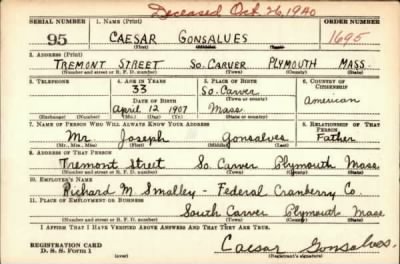 Deceased Oct 26, 1940
SERIAL NUMBER 1. NAME (Print) ORDER NUMBER
95 CAESAR GONSALVES 1695
(First) (Middle) (Last)
2. ADDRESS (Print)
TREMONT STREET SO. CARVER PLYMOUTH MASS.
(Number and street or R. F. D. number) (Town) (County) (State)
3. TELEPHONE 4. AGE IN YEARS 5. PLACE OF BIRTH 6. COUNTRY OF CITIZENSHIP
33 So. Carver
DATE OF BIRTH (Town or county) American
April 12 1907 Mass
(Exchange) (Number) (Mo.) (Day) (Yr.) (State or country)
7. NAME OF PERSON WHO WILL ALWAYS KNOW YOUR ADDRESS 8. RELATIONSHIP OF THAT PERSON
Mr. Joseph Gonsalves Father
(Mr., Mrs., Miss) (First) (Middle) (Last)
9. ADDRESS OF THAT PERSON
Tremont Street So. Carver Plymouth Mass
(Number and street or R. F. D. number) (Town) (County) (State)
10. EMPLOYER'S NAME
Richard M. Smalley - Federal Cranberry Co.
11. PLACE OF EMPLOYMENT OR BUSINESS
South Carver Plymouth Mass
(Number and street or R. F. D. number) (Town) (County) (State)
I AFFIRM THAT I HAVE VERIFIED ABOVE ANSWERS AND THAT THEY ARE TRUE.
REGISTRATION CARD
D. S. S. Form 1 (over) Caesar Gonsalves.
(Registrant's signature)